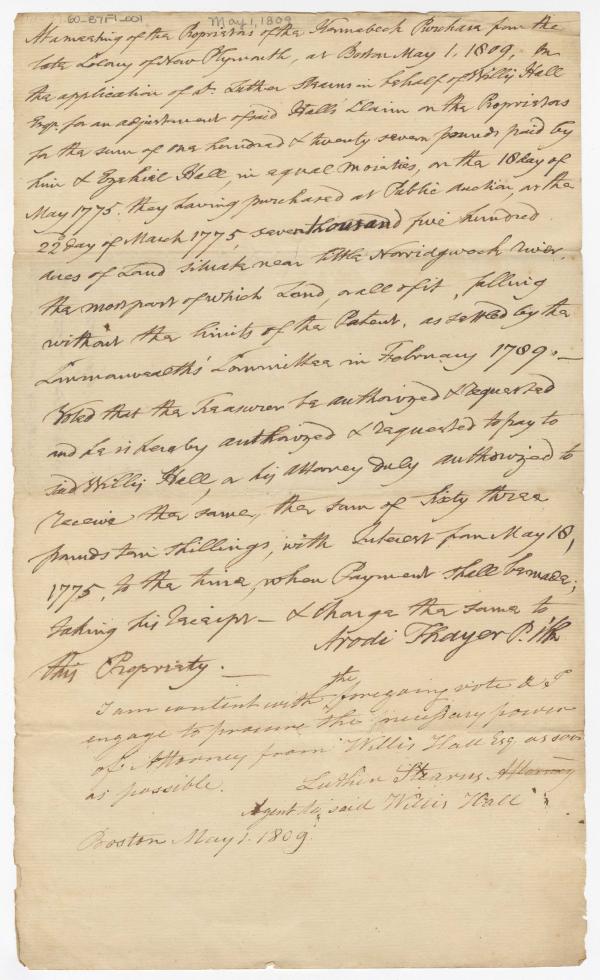 60-87F1-001 May 1, 1809
At a meeting of the Proprietors of the Kennebeck Purchase from the
late Colony of New Plymouth, at Boston May 1, 1809, On
the application of Mr. Luther Stearns in behalf of Willis Hall
Esqr. for an adjustment of said Hall's Claim on the Proprietors
for the sum of one hundred & twenty seven pounds paid by
him & Ezekiel Hall, in equal moieties, on the 18 day of
May 1775. they having purchased at Public Auction, on the
22d day of March 1775, seven thousand five hundred
acres of Land situate near little Norridgwock river,
the most part of which Land, or all of it, falling
without the limits of the Patent, as settled by the
Commonwealth's Committee in February 1789. —
Voted that the Treasurer be authorized & requested
and he is hereby authorized & requested to pay to
said Willis Hall, or his attorney duly authorized to
receive the same, the sum of Sixty three
pounds ten shillings, with Interest from May 18,
1775, to the time, when Payment shall be made;
taking his receipt — & charge the same to
this Propriety. —
Arodi Thayer P. Clk
I am content with the foregoing vote & I
engage to procure the necessary power
of Attorney from Willis Hall Esq as soon
as possible.
Luther Stearns Attorney
Agent to said Willis Hall
Boston May 1. 1809